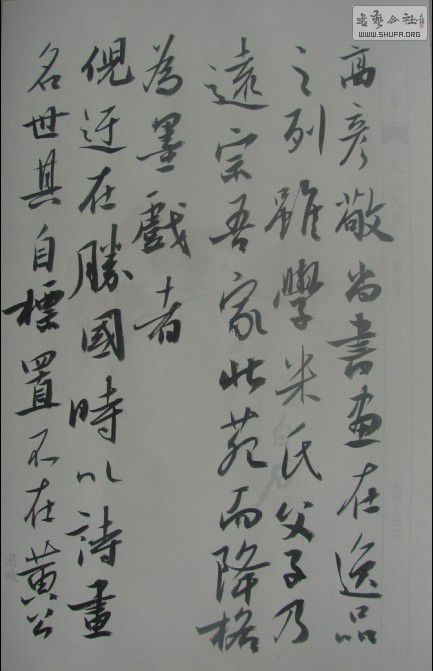 高彦敬尚書画在逸品
之列雖學米氏父子乃
遠宗吾家北苑而降格
為墨戲者
倪迂在勝國時以詩畫
名世其自標置不在黄公
書藝公社
WWW.SHUFA.ORG